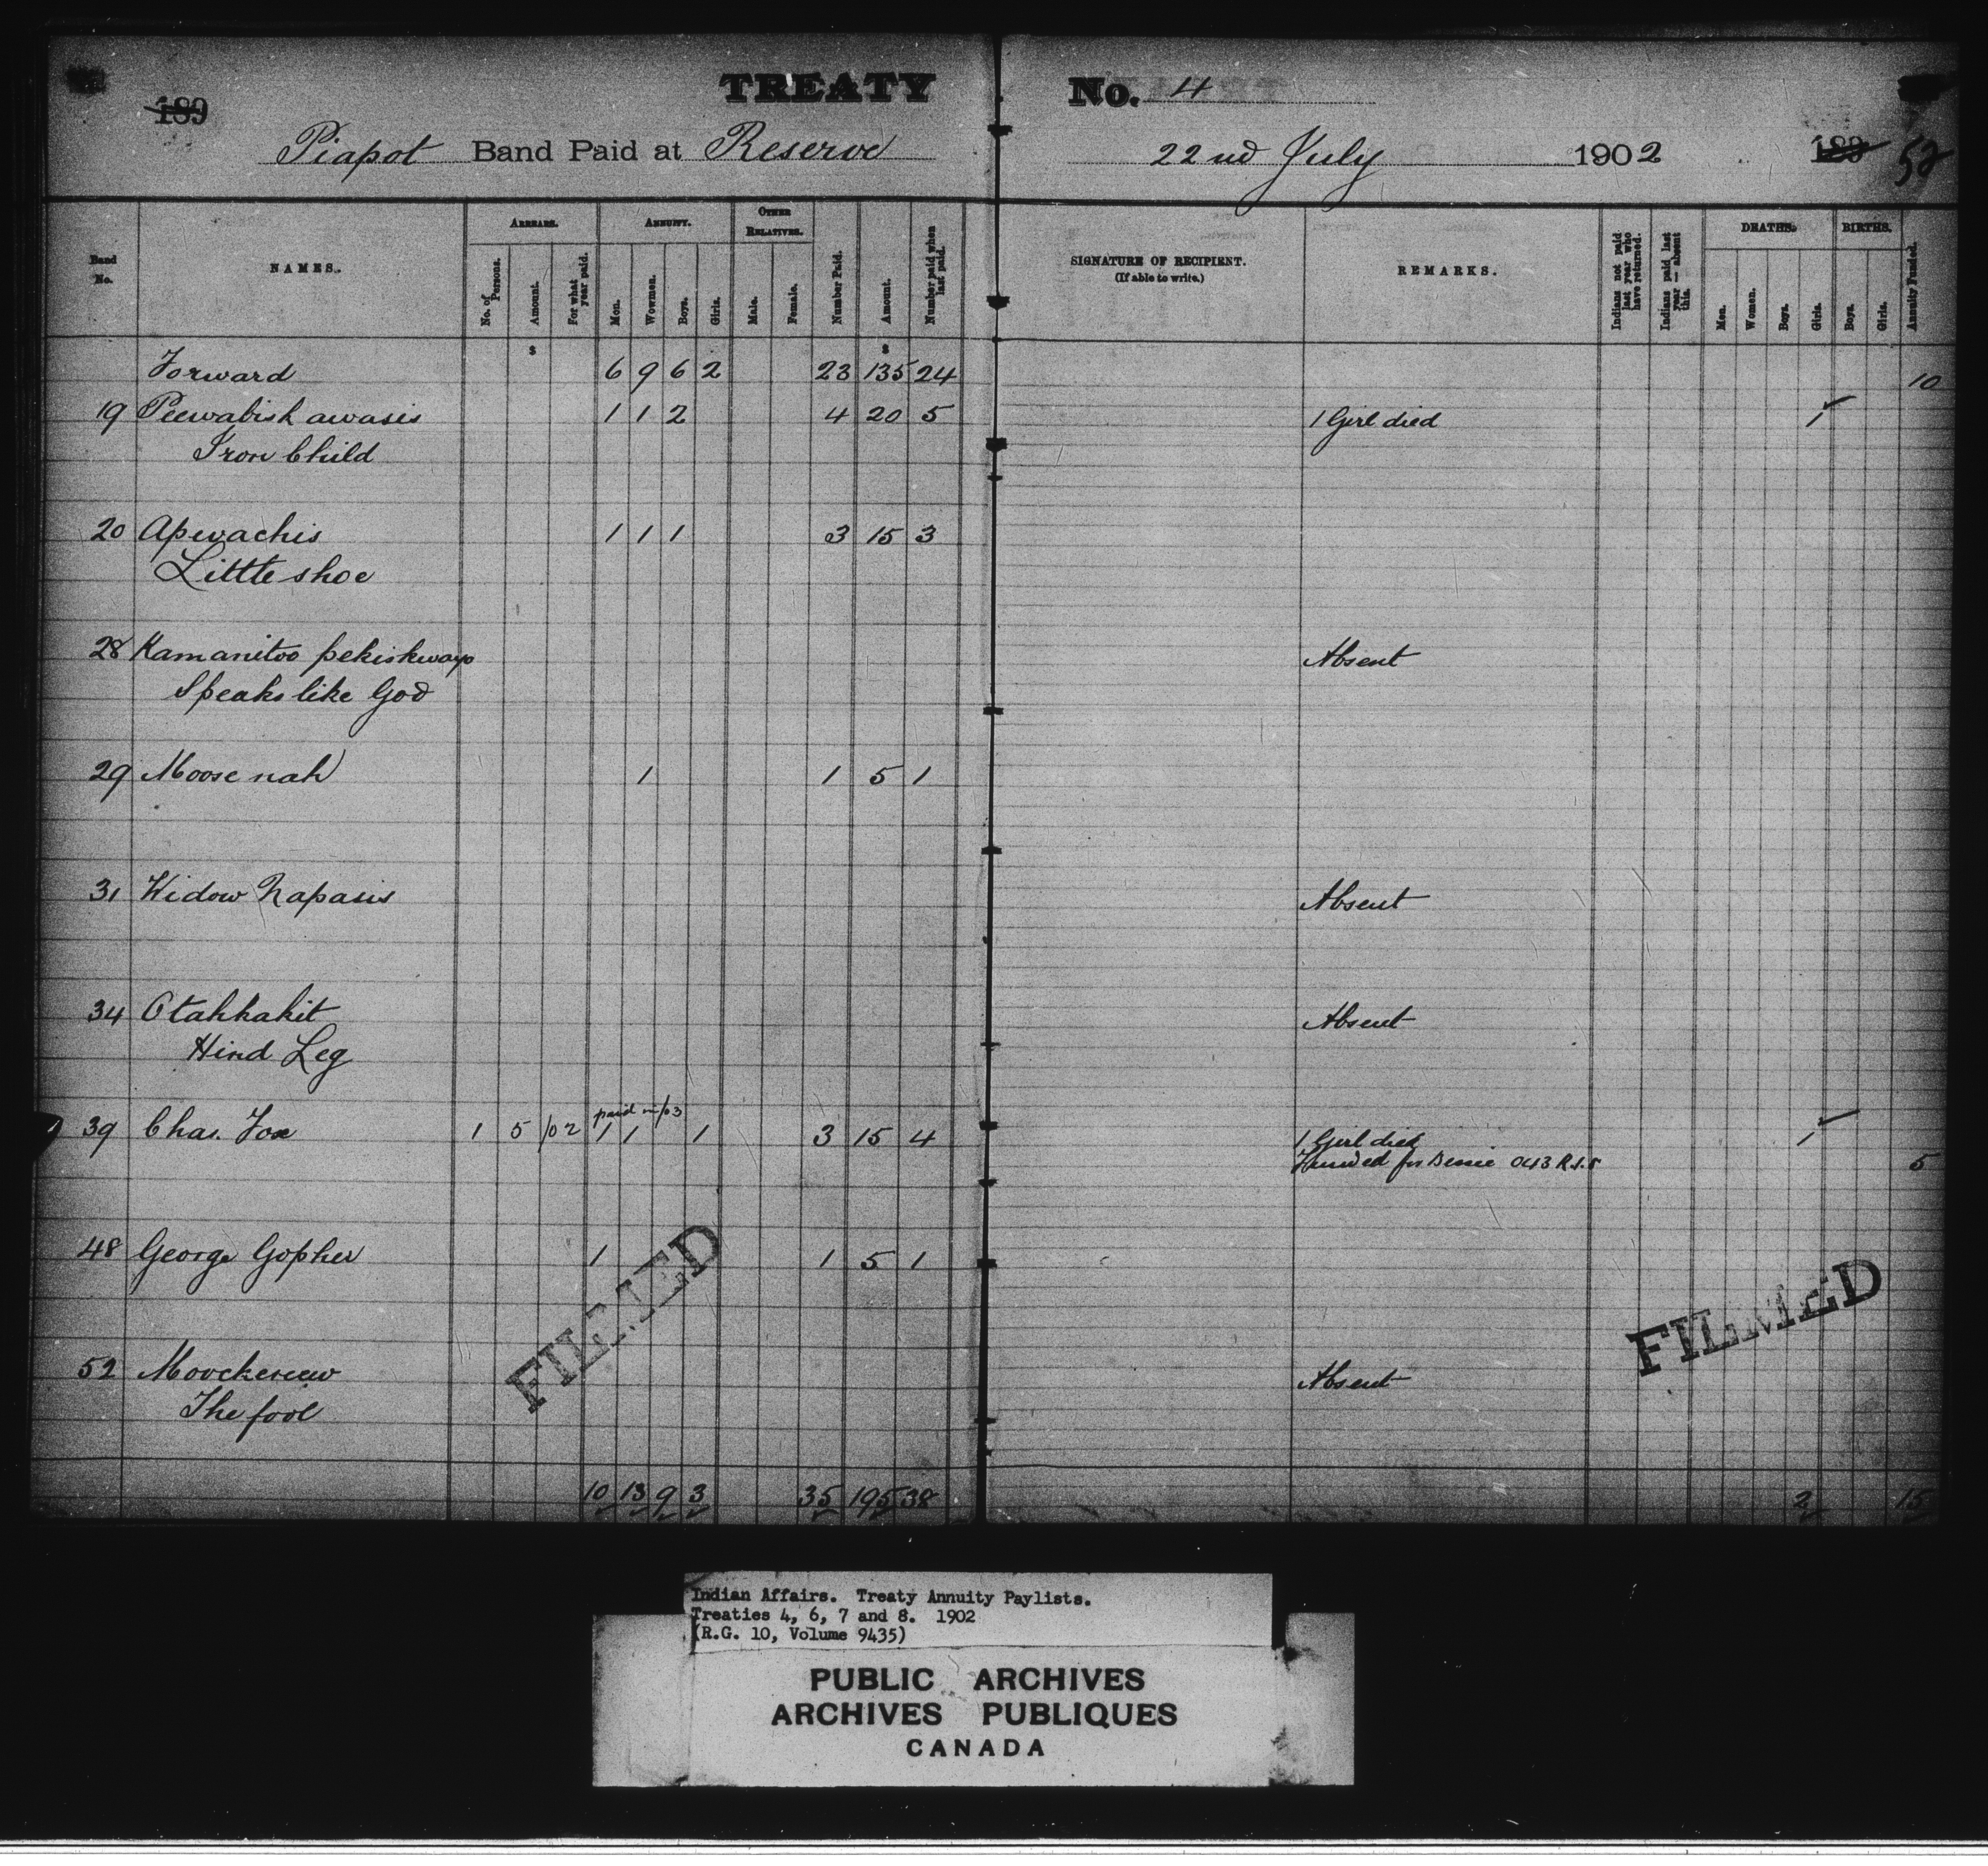 TREATY No. 4
189
Piapot Band Paid at Reserve 22nd July 1902 189 52
Band No. NAMES. ARREARS. No. of Persons. Amount. For what year paid. ANNUITY. Men. Wowmen. Boys. Girls. OTHER RELATIVES. Male. Female. Number Paid. Amount. Number paid when last paid. SIGNATURE OF RECIPIENT. (If able to write.) REMARKS. Indians not paid last year who have returned. Indians paid last year — absent this. DEATHS. Men. Women. Boys. Girls. BIRTHS. Boys. Girls. Annuity Funded.
$ $
Forward 6 9 6 2 23 135 24 10
19 Peewabish awasis 1 1 2 4 20 5 1 Girl died 1
Iron Child
20 Apwachis 1 1 1 3 15 3
Little shoe
28 Kamanitoo pekiskwayo Absent
Speaks like God
29 Moose nah 1 1 5 1
31 Widow Napasis Absent
34 Otahkahit Absent
Hind Leg
paid in/03
39 Chas. Fox 1 5 /02 1 1 1 3 15 4 1 Girl died 1
Funded for Bessie 043 R.I.S 5
48 George Gopher 1 1 5 1
FILMED FILMED
52 Moockeseew Absent
The fool
10 13 9 3 35 195 38 2 15
Indian Affairs. Treaty Annuity Paylists.
Treaties 4, 6, 7 and 8. 1902
(R.G. 10, Volume 9435)
PUBLIC ARCHIVES
ARCHIVES PUBLIQUES
CANADA